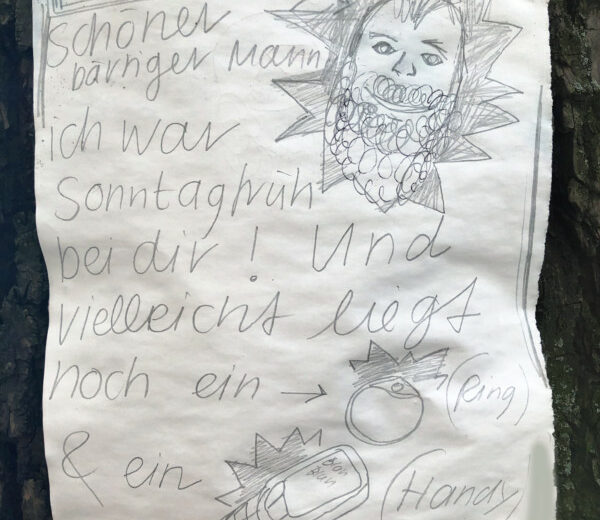 Schöner
bärtiger Mann
ich war
Sonntagfrüh
bei dir! Und
vielleicht liegt
noch ein → (Ring)
& ein (Handy)